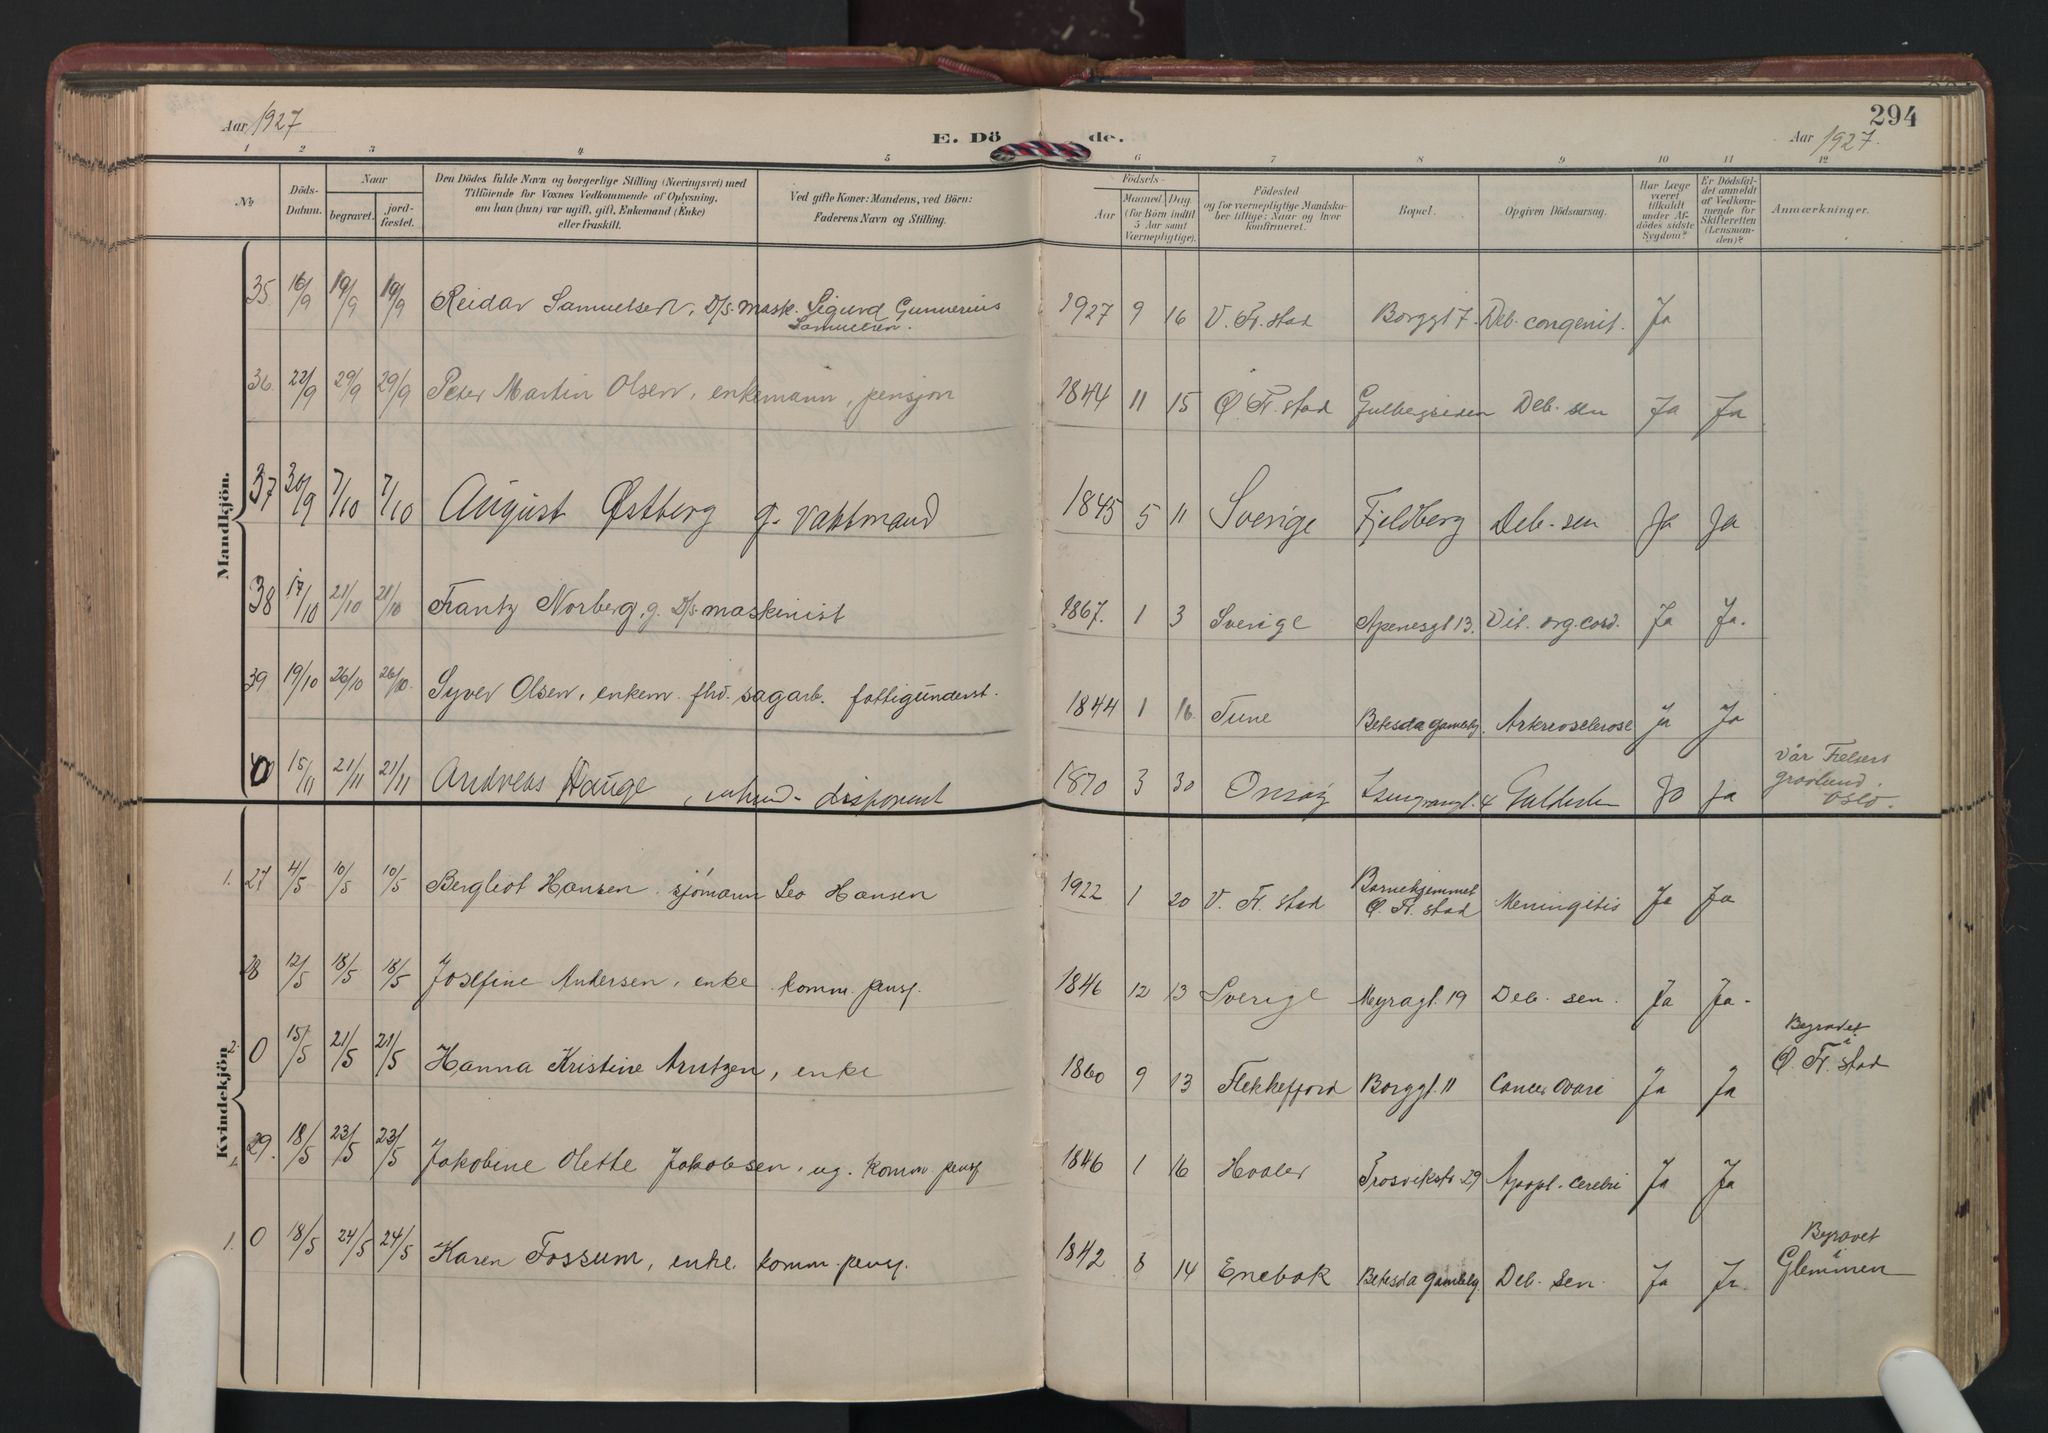 294
Aar 1927
E. Dö de.
Aar 1927.
1 2 3 4 5 6 7 8 9 10 11 12
No.
Döds-Datum.
Naar
begravet.
jord-fæstet.
Den Dödes fulde Navn og borgerlige Stilling (Næringsvei) med
Tilföiende for Voxnes Vedkommende af Oplysning,
om han (hun) var ugift, gift, Enkemand (Enke)
eller fraskilt.
Ved gifte Koner: Mandens, ved Börn:
Faderens Navn og Stilling.
Födsels-
Aar
Maaned
(for Börn indtil
5 Aar samt
Værnepligtige).
Dag
Födested
og for værnepligtige Mandska-
ber tillige: Naar og hvor
konfirmeret.
Bopæl.
Opgiven Dödsaarsag.
Har Læge
været
tilkaldt
under Af-
dödes sidste
Sygdom?
Er Dödsfal-
det anmeldt
af Vedkom-
mende for
Skifteretten
(Lensman-
den)?
Anmærkninger.
Mandkjön.
35 16/9 19/9 19/9 Reidar Samuelsen, D/s. mask. Sigurd Gunnerius Samuelsen. 1927 9 16 V. Fr.stad Borggt 7. Deb. congenit. Ja
36. 22/9 29/9 29/9 Peter Martin Olsen, enkemann, pensjon 1844 11 15 Ø. Fr.stad Gulbergsiden Deb. sen Ja Ja
37 30/9 7/10 7/10 August Østberg g. vaktmand 1845 5 11 Sverige Fjeldberg Deb. sen Ja Ja
38 17/10 21/10 21/10 Frantz Norberg, g. D/s. maskinist 1867. 1 3 Sverige Apenesgt 13. Vit. org. cord. Ja Ja.
39 19/10 26/10 26/10. Syver Olsen, enkem. fhv. sagarb. fattigunderst. 1844 1 16. Tune Betesda gamleh. Arteriosclerose Ja Ja
40 15/11 21/11 21/11 Andreas Hauge, disponent 1870 3 30 Onsøy 4 Ja Ja Vår Frelsers
gravlund.
Oslo.
Kvindekjön
1. 27 4/5 10/5 10/5 Bergliot Hansen. sjömann Leo Hansen 1922 1 20 V. Fr.stad Barnehjemmet
Ø. Fr.stad Meningitis Ja Ja
28 12/5 18/5 18/5 Josefine Andersen, enke. komm. pensj. 1846 12 13 Sverige Myragt. 19 Deb. sen. Ja Ja.
2. 0 15/5 21/5 21/5 Hanna Kristine Arntzen, enke 1860 9 13 Flekkefjord Borggt. 11 Cancer ovari Ja Ja Begravet
i
Ø. Fr.stad
29. 18/5 23/5 23/5 Jakobine Olette Jakobsen, ug. komm. pensj 1846 1 16 Hvaler Trosvikstr 29 Apopl. cerebri Ja Ja
1. 0 18/5 24/5 24/5 Karen Fossum, enke. komm. pensj. 1842 8 14 Enebak Betesda gamleh. Deb. sen. Ja Ja. Begravet
i
Glemmen